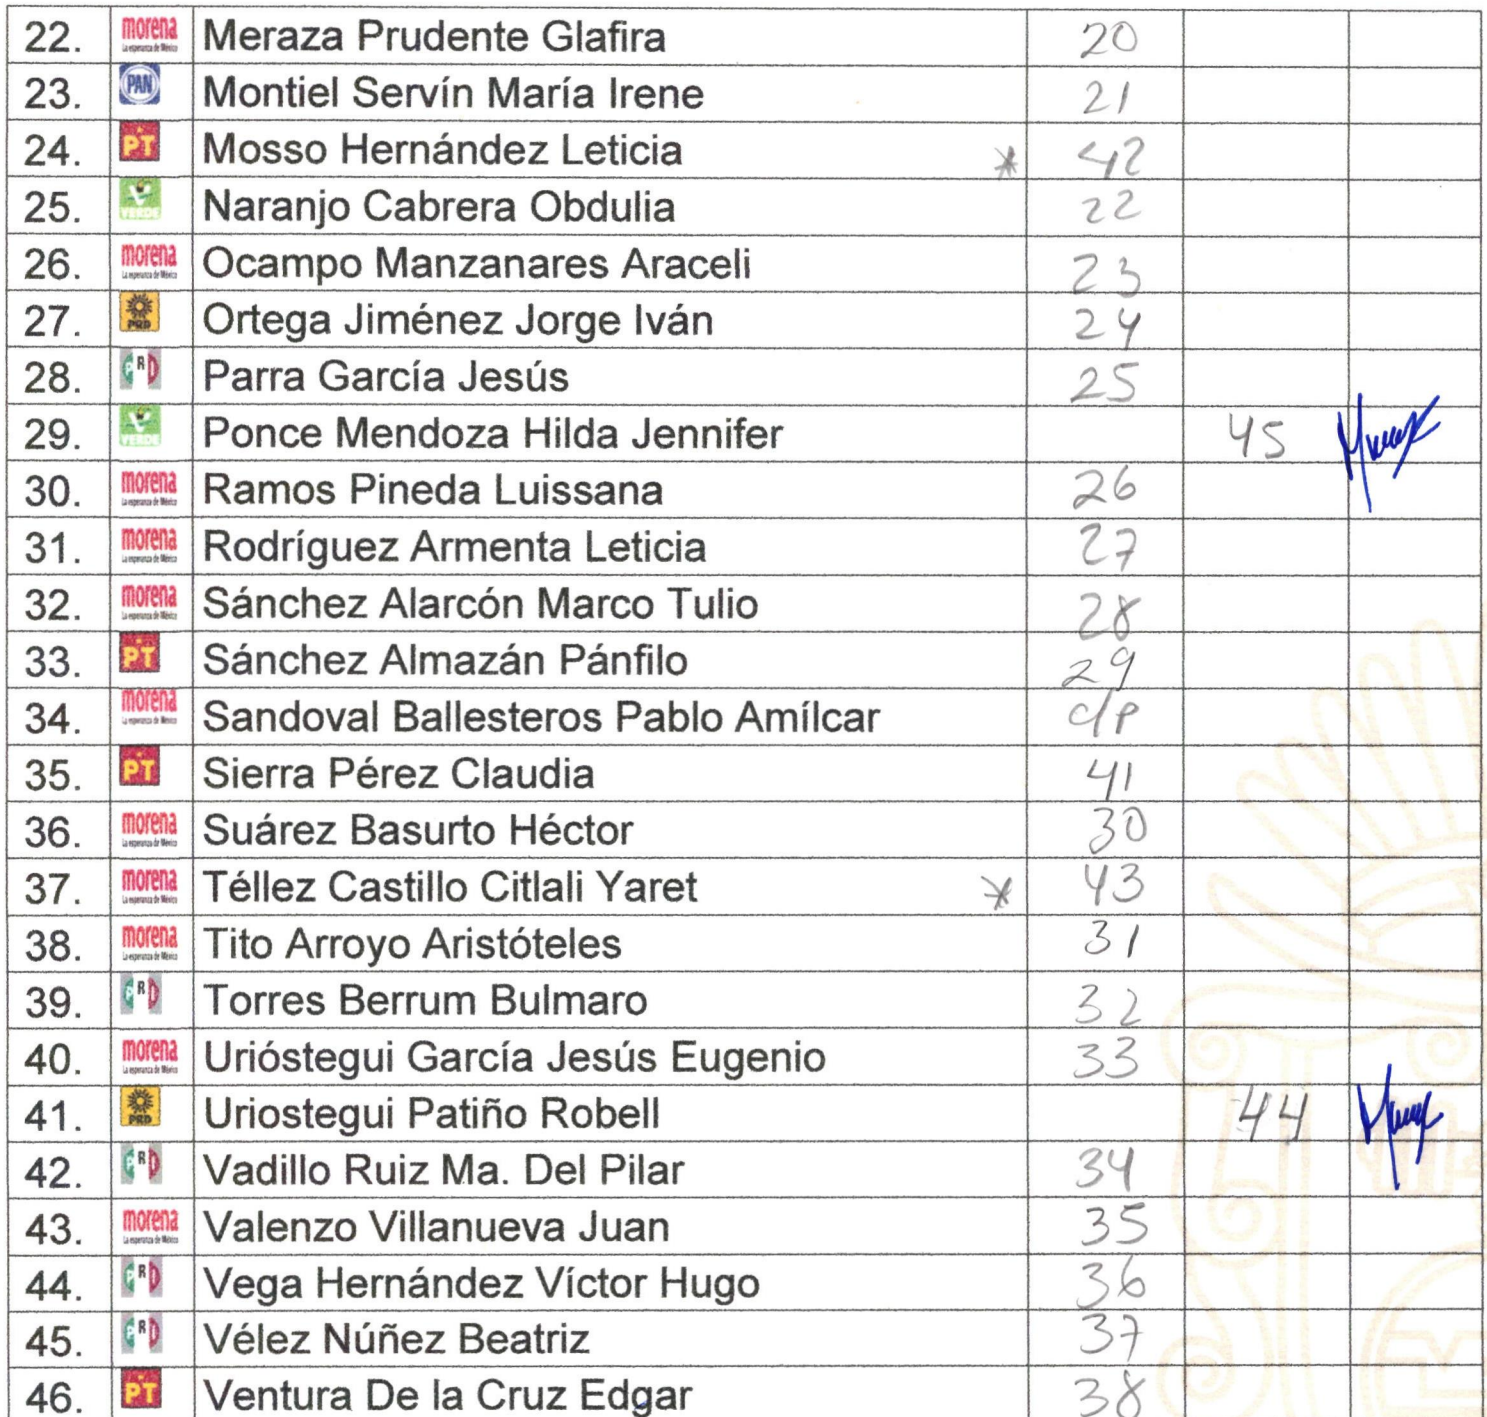 22. morena La esperanza de México Meraza Prudente Glafira 20
23. PAN Montiel Servín María Irene 21
24. PT Mosso Hernández Leticia * 42
25. VERDE Naranjo Cabrera Obdulia 22
26. morena La esperanza de México Ocampo Manzanares Araceli 23
27. PRD Ortega Jiménez Jorge Iván 24
28. PRI Parra García Jesús 25
29. VERDE Ponce Mendoza Hilda Jennifer 45
30. morena La esperanza de México Ramos Pineda Luissana 26
31. morena La esperanza de México Rodríguez Armenta Leticia 27
32. morena La esperanza de México Sánchez Alarcón Marco Tulio 28
33. PT Sánchez Almazán Pánfilo 29
34. morena La esperanza de México Sandoval Ballesteros Pablo Amílcar c/p
35. PT Sierra Pérez Claudia 41
36. morena La esperanza de México Suárez Basurto Héctor 30
37. morena La esperanza de México Téllez Castillo Citlali Yaret * 43
38. morena La esperanza de México Tito Arroyo Aristóteles 31
39. PRI Torres Berrum Bulmaro 32
40. morena La esperanza de México Urióstegui García Jesús Eugenio 33
41. PRD Uriostegui Patiño Robell 44
42. PRI Vadillo Ruiz Ma. Del Pilar 34
43. morena La esperanza de México Valenzo Villanueva Juan 35
44. PRI Vega Hernández Víctor Hugo 36
45. PRI Vélez Núñez Beatriz 37
46. PT Ventura De la Cruz Edgar 38